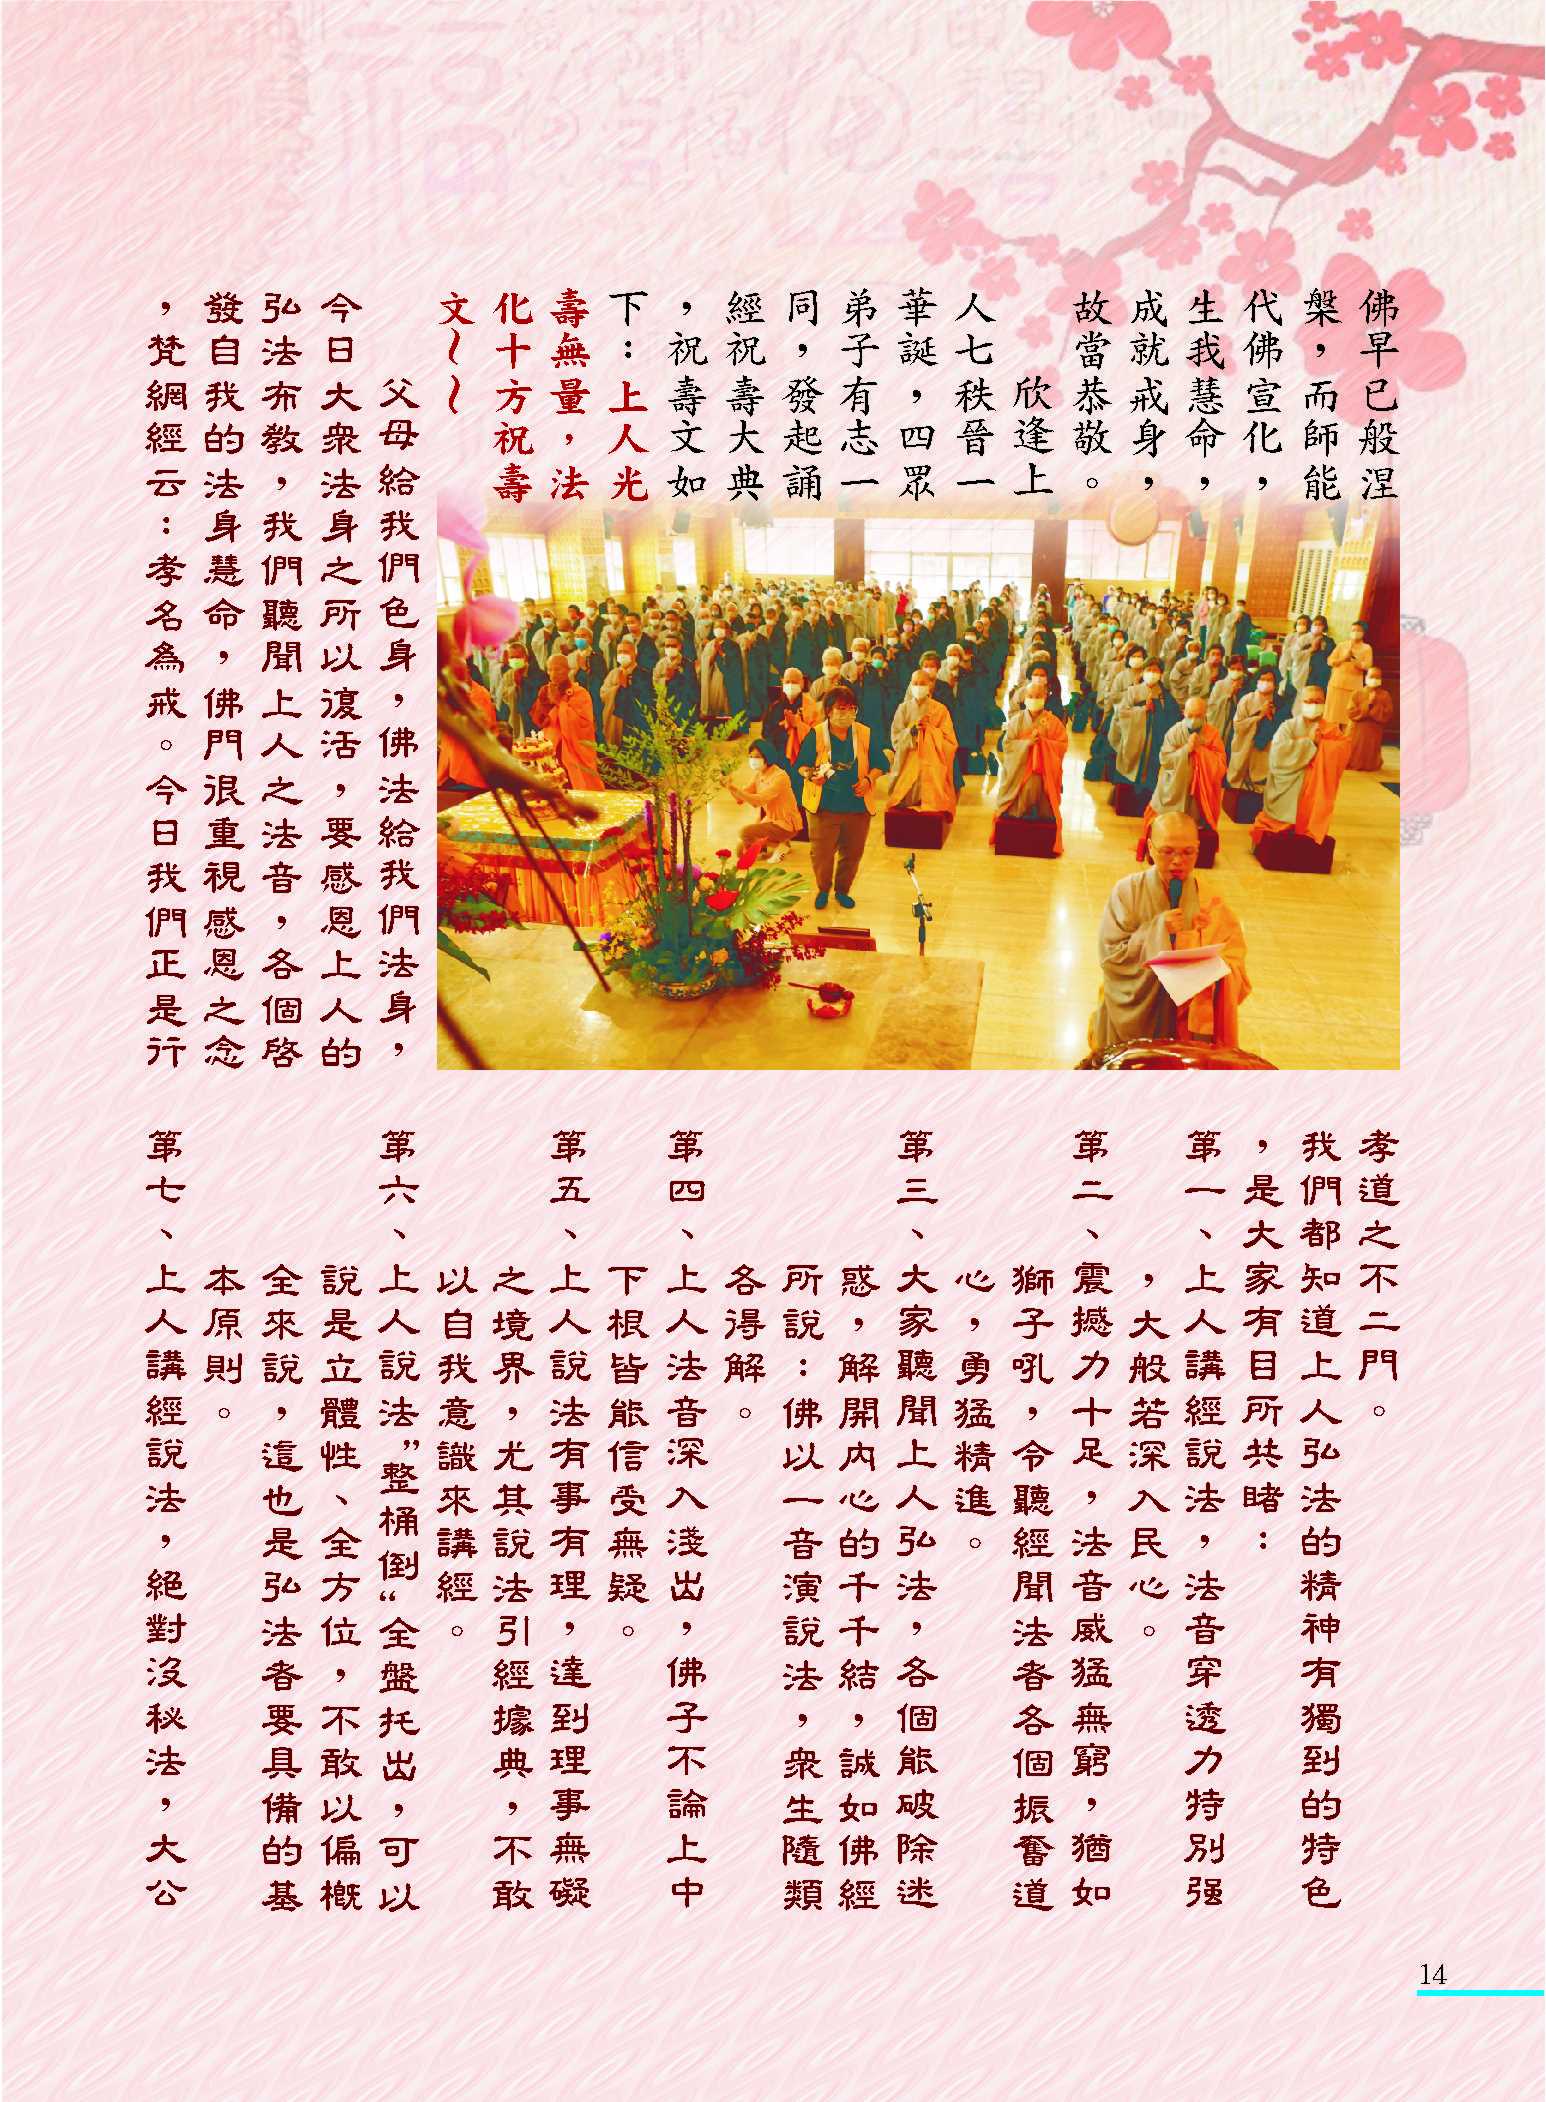 佛早已般涅
槃，而師能
代佛宣化，
生我慧命，
成就戒身，
故當恭敬。
欣逢上
人七秩晉一
華誕，四眾
弟子有志一
同，發起誦
經祝壽大典
，祝壽文如
下：上人光
壽無量，法
化十方祝壽
文～～
父母給我們色身，佛法給我們法身，
今日大衆法身之所以復活，要感恩上人的
弘法布教，我們聽聞上人之法音，各個啓
發自我的法身慧命，佛門很重視感恩之念
，梵網經云：孝名為戒。今日我們正是行
孝道之不二門。
我們都知道上人弘法的精神有獨到的特色
，是大家有目所共睹：
第一、上人講經說法，法音穿透力特別强
，大般若深入民心。
第二、震撼力十足，法音威猛無窮，猶如
獅子吼，令聽經聞法者各個振奮道
心，勇猛精進。
第三、大家聽聞上人弘法，各個能破除迷
惑，解開內心的千千結，誠如佛經
所說：佛以一音演說法，衆生隨類
各得解。
第四、上人法音深入淺出，佛子不論上中
下根皆能信受無疑。
第五、上人說法有事有理，達到理事無礙
之境界，尤其說法引經據典，不敢
以自我意識來講經。
第六、上人說法”整桶倒“全盤托出，可以
說是立體性、全方位，不敢以偏概
全來說，這也是弘法者要具備的基
本原則。
第七、上人講經說法，絕對沒秘法，大公
14